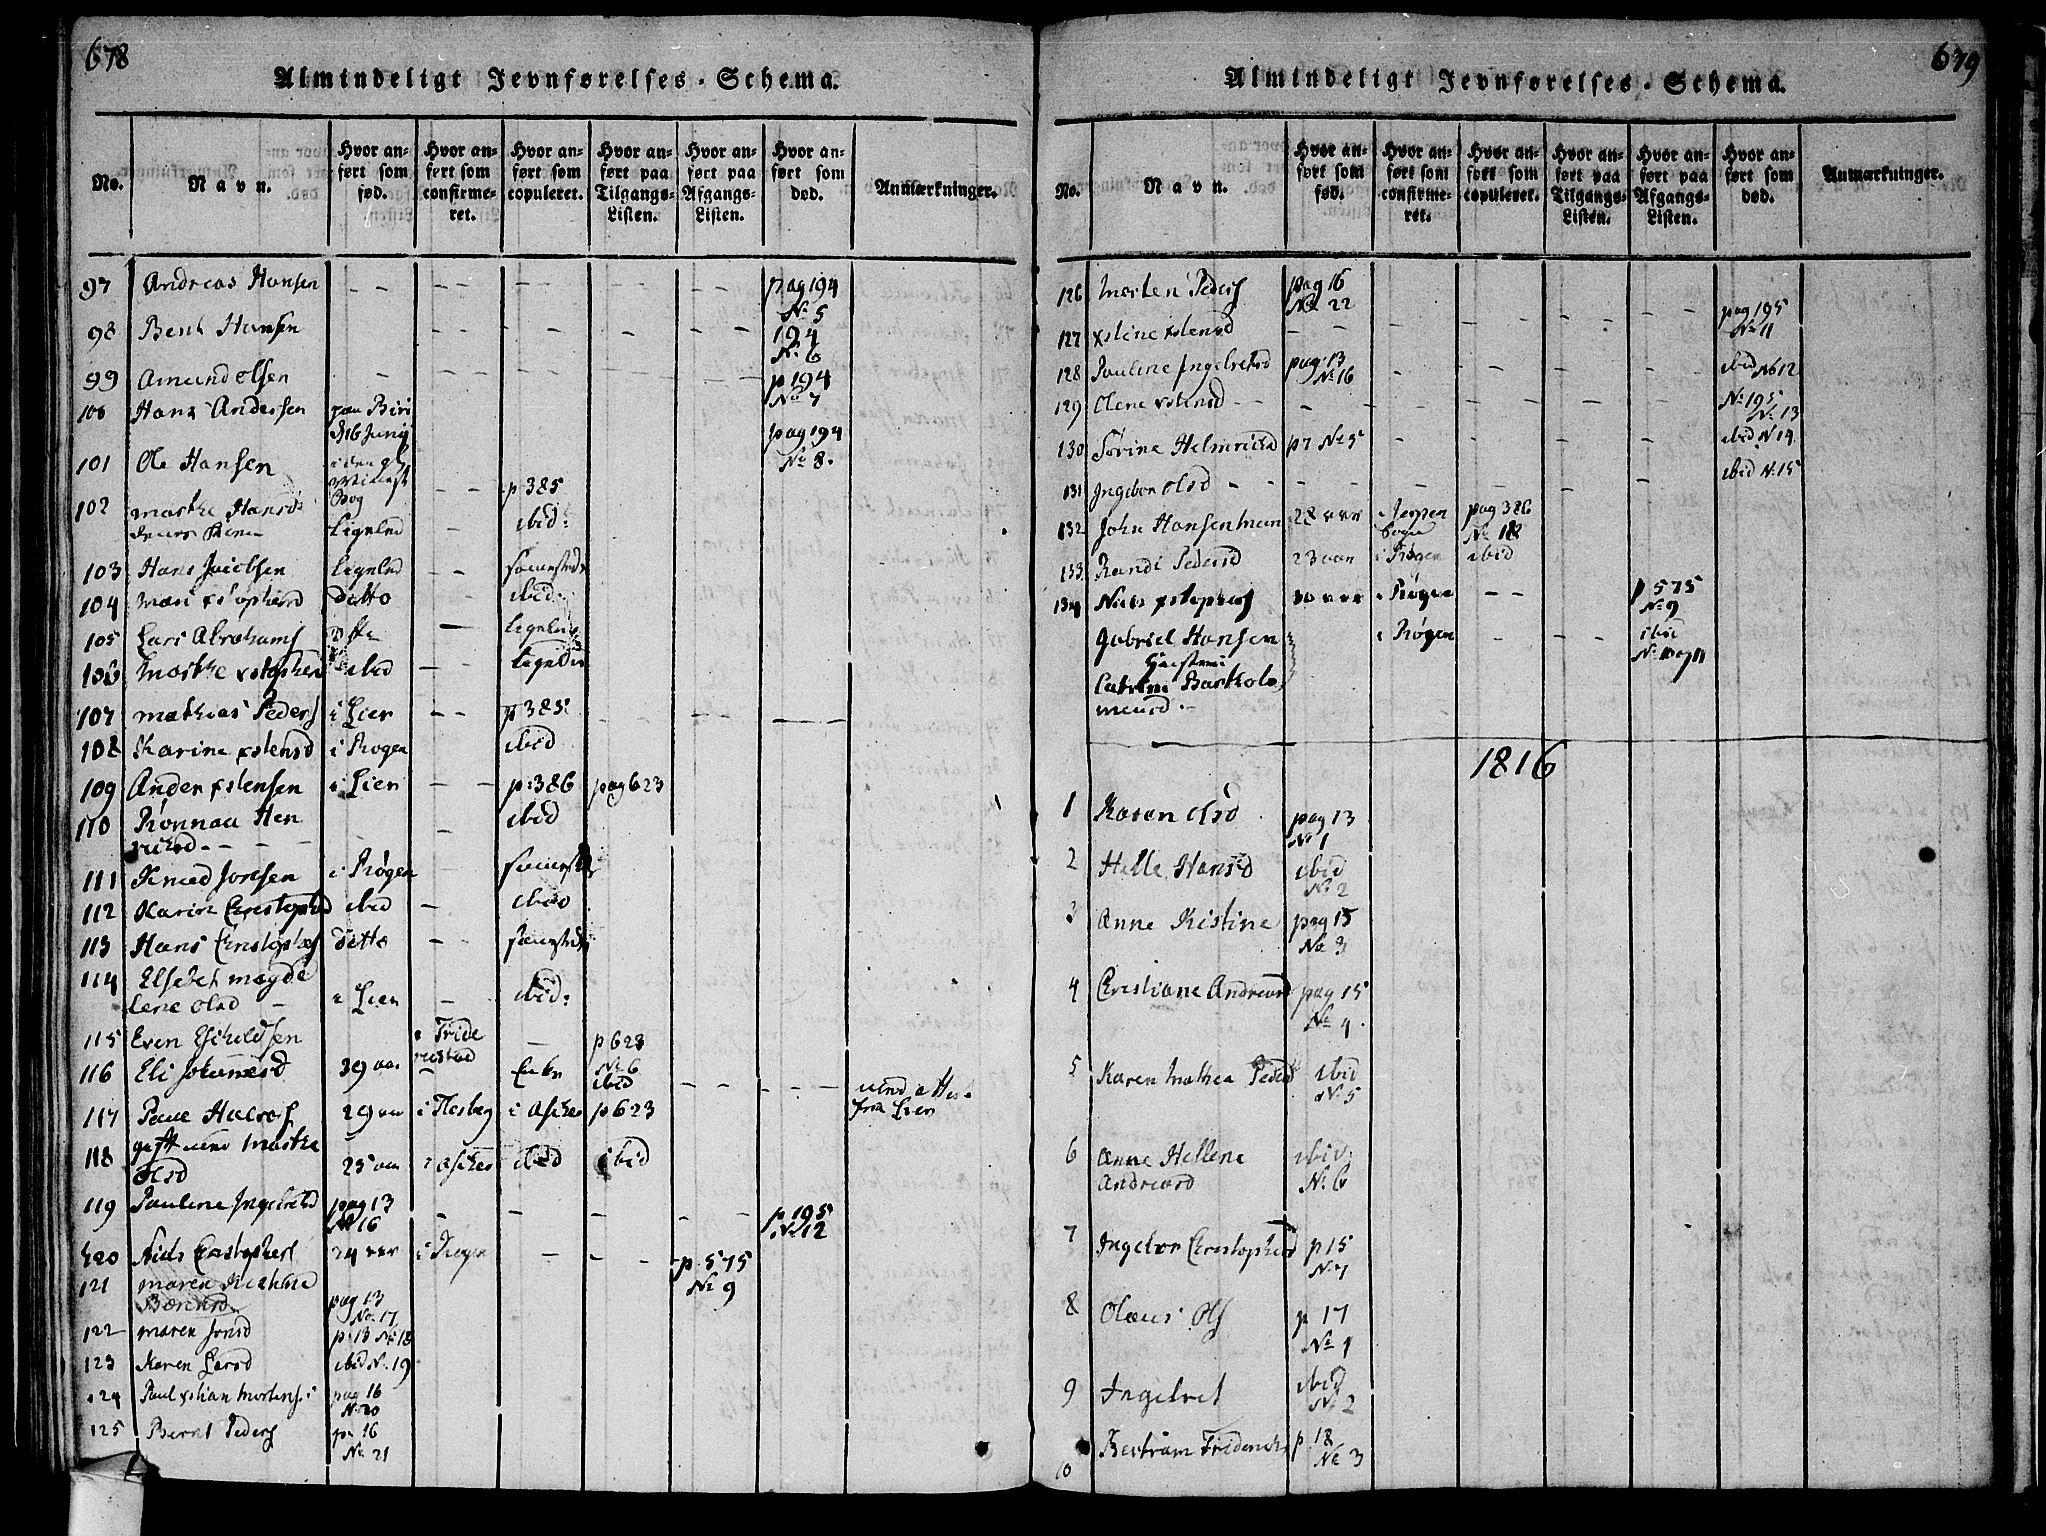 678
Almindeligt Jevnførelses-Schema.
No.
Navn.
Hvor an-
ført som
fød.
Hvor an-
ført som
confirme-
ret.
Hvor an-
ført som
copuleret.
Hvor an-
ført paa
Tilgangs-
Listen.
Hvor an-
ført paa
Afgangs-
Listen.
Hvor an-
ført som
død.
Anmærkninger.
97 Andreas Hansen – – – – – – pag 194
No 5
98 Bent Hansen – – – – – – 194
No 6
99 Amund Olsen – – – – – – p 194
No 7
100 Hans Andersen
16 Juny pag 194
No 8.
101 Ole Hansen – – p 385
Bog
102 Marthe Hansd ibid:
ligeled
103 Hans Jacobsen ligeled – –
104 Mari xstophersd ditto – – ibid.
105 Lars Abrahams — ligeled
106 Marthe xstophersd ibid – – ligeled
107 Mathias Peders i Lier – – p 385. – – – –
108 Karine xstensd i Røgen ibid
109 Anders xstensen i Lier – – p: 386 pag 623
110 Rønnau Hen
richsd. – – – – – ibid
111 Knud Jonsen i Røgen
112 Karine Christophersd ibid – ibid
113 Hans Christophers ditto –
114 Elsebet Magda
lene Olsd – i Lier – ibid:
115 Even Eschildsen i Fride
richstad – p 623
No 6
116 Eli Johannesd 39 aar – ibid – – – –
117 Poul Halvors 29 aar i Flesberg i Asker p 623
fra Lier
118 gift med Marthe
Olsd 25 aar i Asker ibid ibid
119 Pauline Ingebretsd pag 13
No 16 – – – – – p 195
No 12
120 Niels Christophers 24 aar i Røgen – – – p. 575
No 9
121 Maren
pag 13
No. 17
122 Maren Jonsd p: 13 No 18
123 Karen Larsd ibid N. 19
124 Paul xstian Mortens. pag 16
No 20
125 Bernt Peders pa 16
No 21
679
Almindeligt Jevnførelses-Schema.
No.
Navn.
Hvor an-
ført som
fød.
Hvor an-
ført som
confirme-
ret.
Hvor an-
ført som
copuleret.
Hvor an-
ført paa
Tilgangs-
Listen.
Hvor an-
ført paa
Afgangs-
Listen.
Hvor an-
ført som
død.
Anmærkninger.
126 Morten Peders pag 16
No 22
127 xstine xstensd – – – – – – pag 195
No 11
128 Pauline Ingebretsd pag: 13
No 16 – – – – ibid No 12
129 Olene xstensd – – – – – – No 195
No 13
130 Sørine Helmerichsd p 7 No 5 – – – – ibid N 14
131 Ingebor Olsd – – – – – – ibid N. 15
132 John Hansen 28 aar pag 386
No 18
133 Randi Pedersd 23 aar i Røgen ibid
134 Niels xstophers 30 aar i Røgen – – p 575
No 9
Gabriel Hansen i Røgen – – ibid
No 10 og 11
Bartholo
meusd. –
1816
1 Karen Olsd pag 13
No 1
2 Helle Hansd ibid
No 2
3 Anne Kistine pag 15
No 3
4 Christiane Andreasd pag 15
No 4.
5 Karen Mathea Pedersd ibid
No 5
6 Anne Hellene
Andreasd ibid:
No. 6
7 Ingebor Christophersd p 15
No 7
8 Olaus Ols p 17
No 1
9 Ingebret ibid
No 2
10 Bertram Friderichs p. 18
No 3